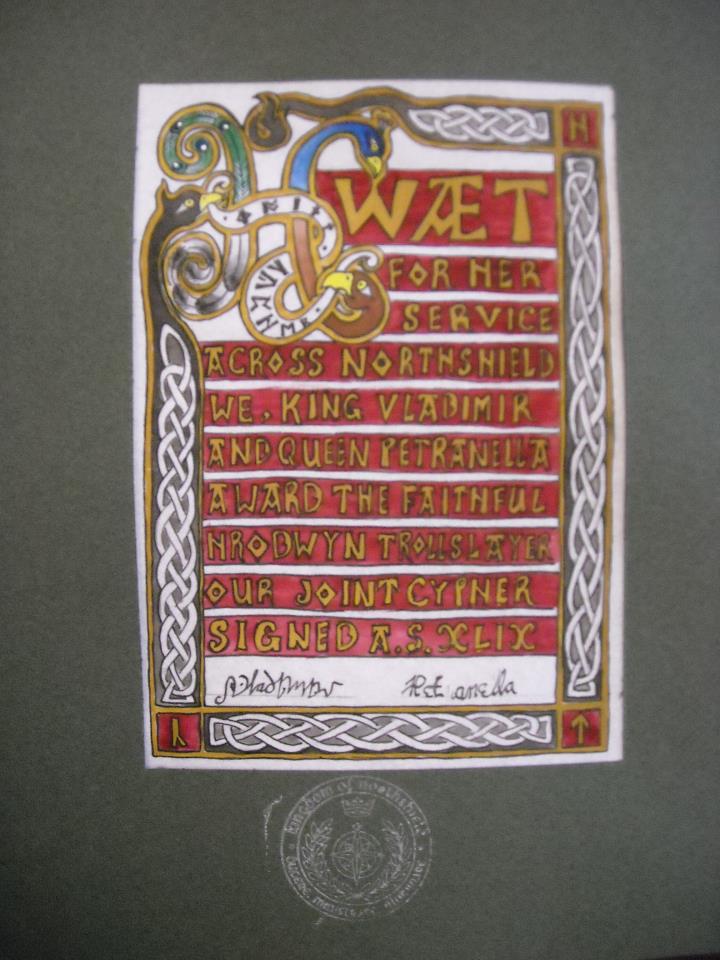 HWÆT
FOR HER
SERVICE
ACROSS NORTHSHIELD
WE, KING VLADIMIR
AND QUEEN PETRANELLA
AWARD THE FAITHFUL
HRODWYN TROLLSLAYER
OUR JOINT CYPHER
SIGNED A.S. XLIX
Petranella
ᚳ
ᛏ
kingdom of northshield